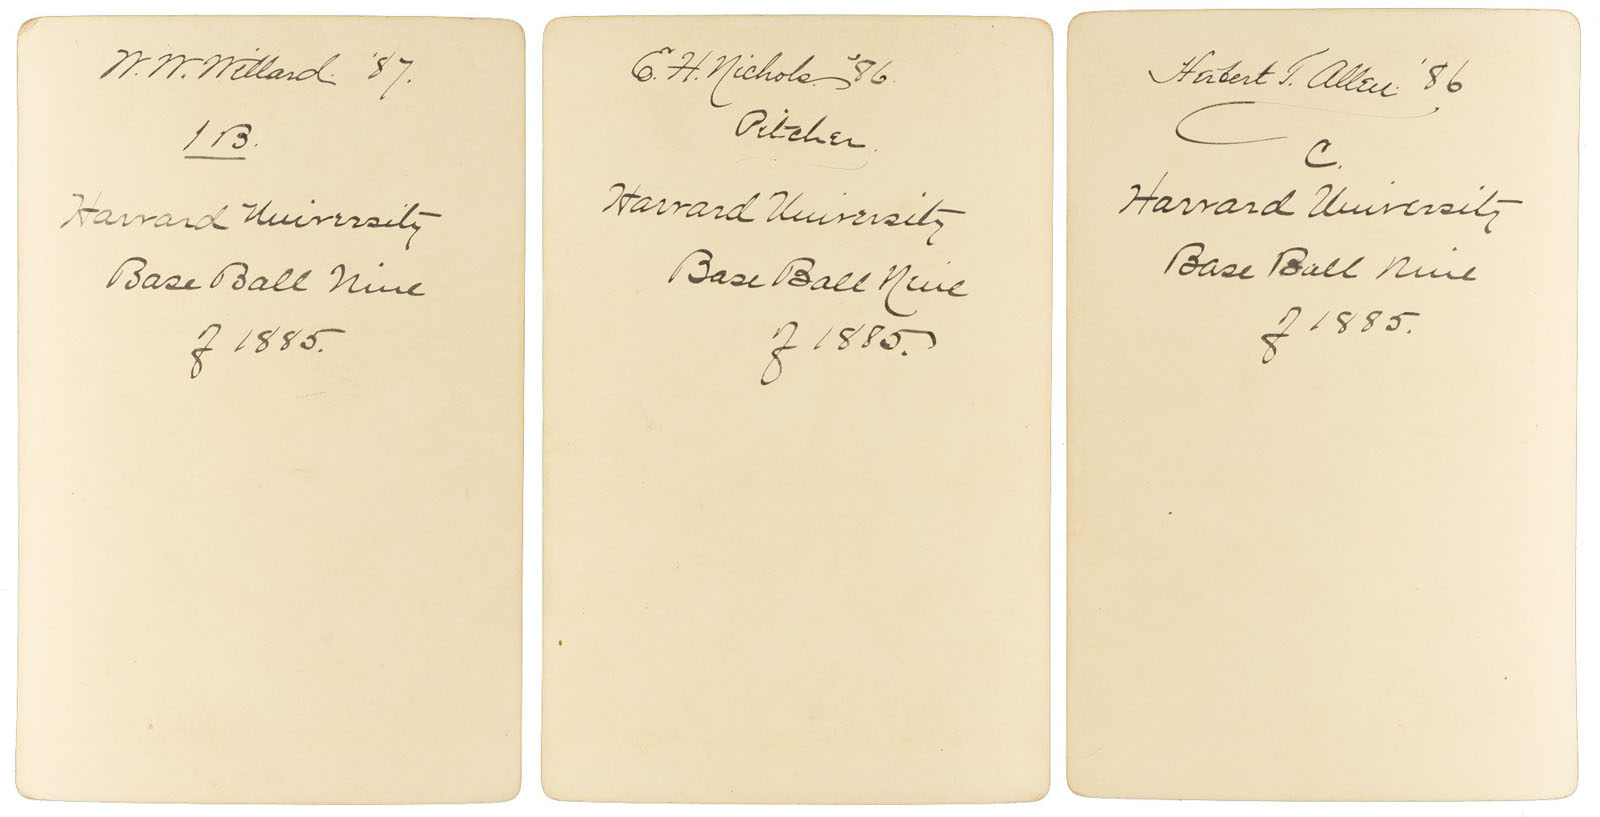 W. W. Willard. '87.
1 B.
Harvard University
Base Ball Nine
of 1885.
E. H. Nichols. '86.
Pitcher.
Harvard University
Base Ball Nine
of 1885.
Herbert T. Allen. '86
C.
Harvard University
Base Ball Nine
of 1885.